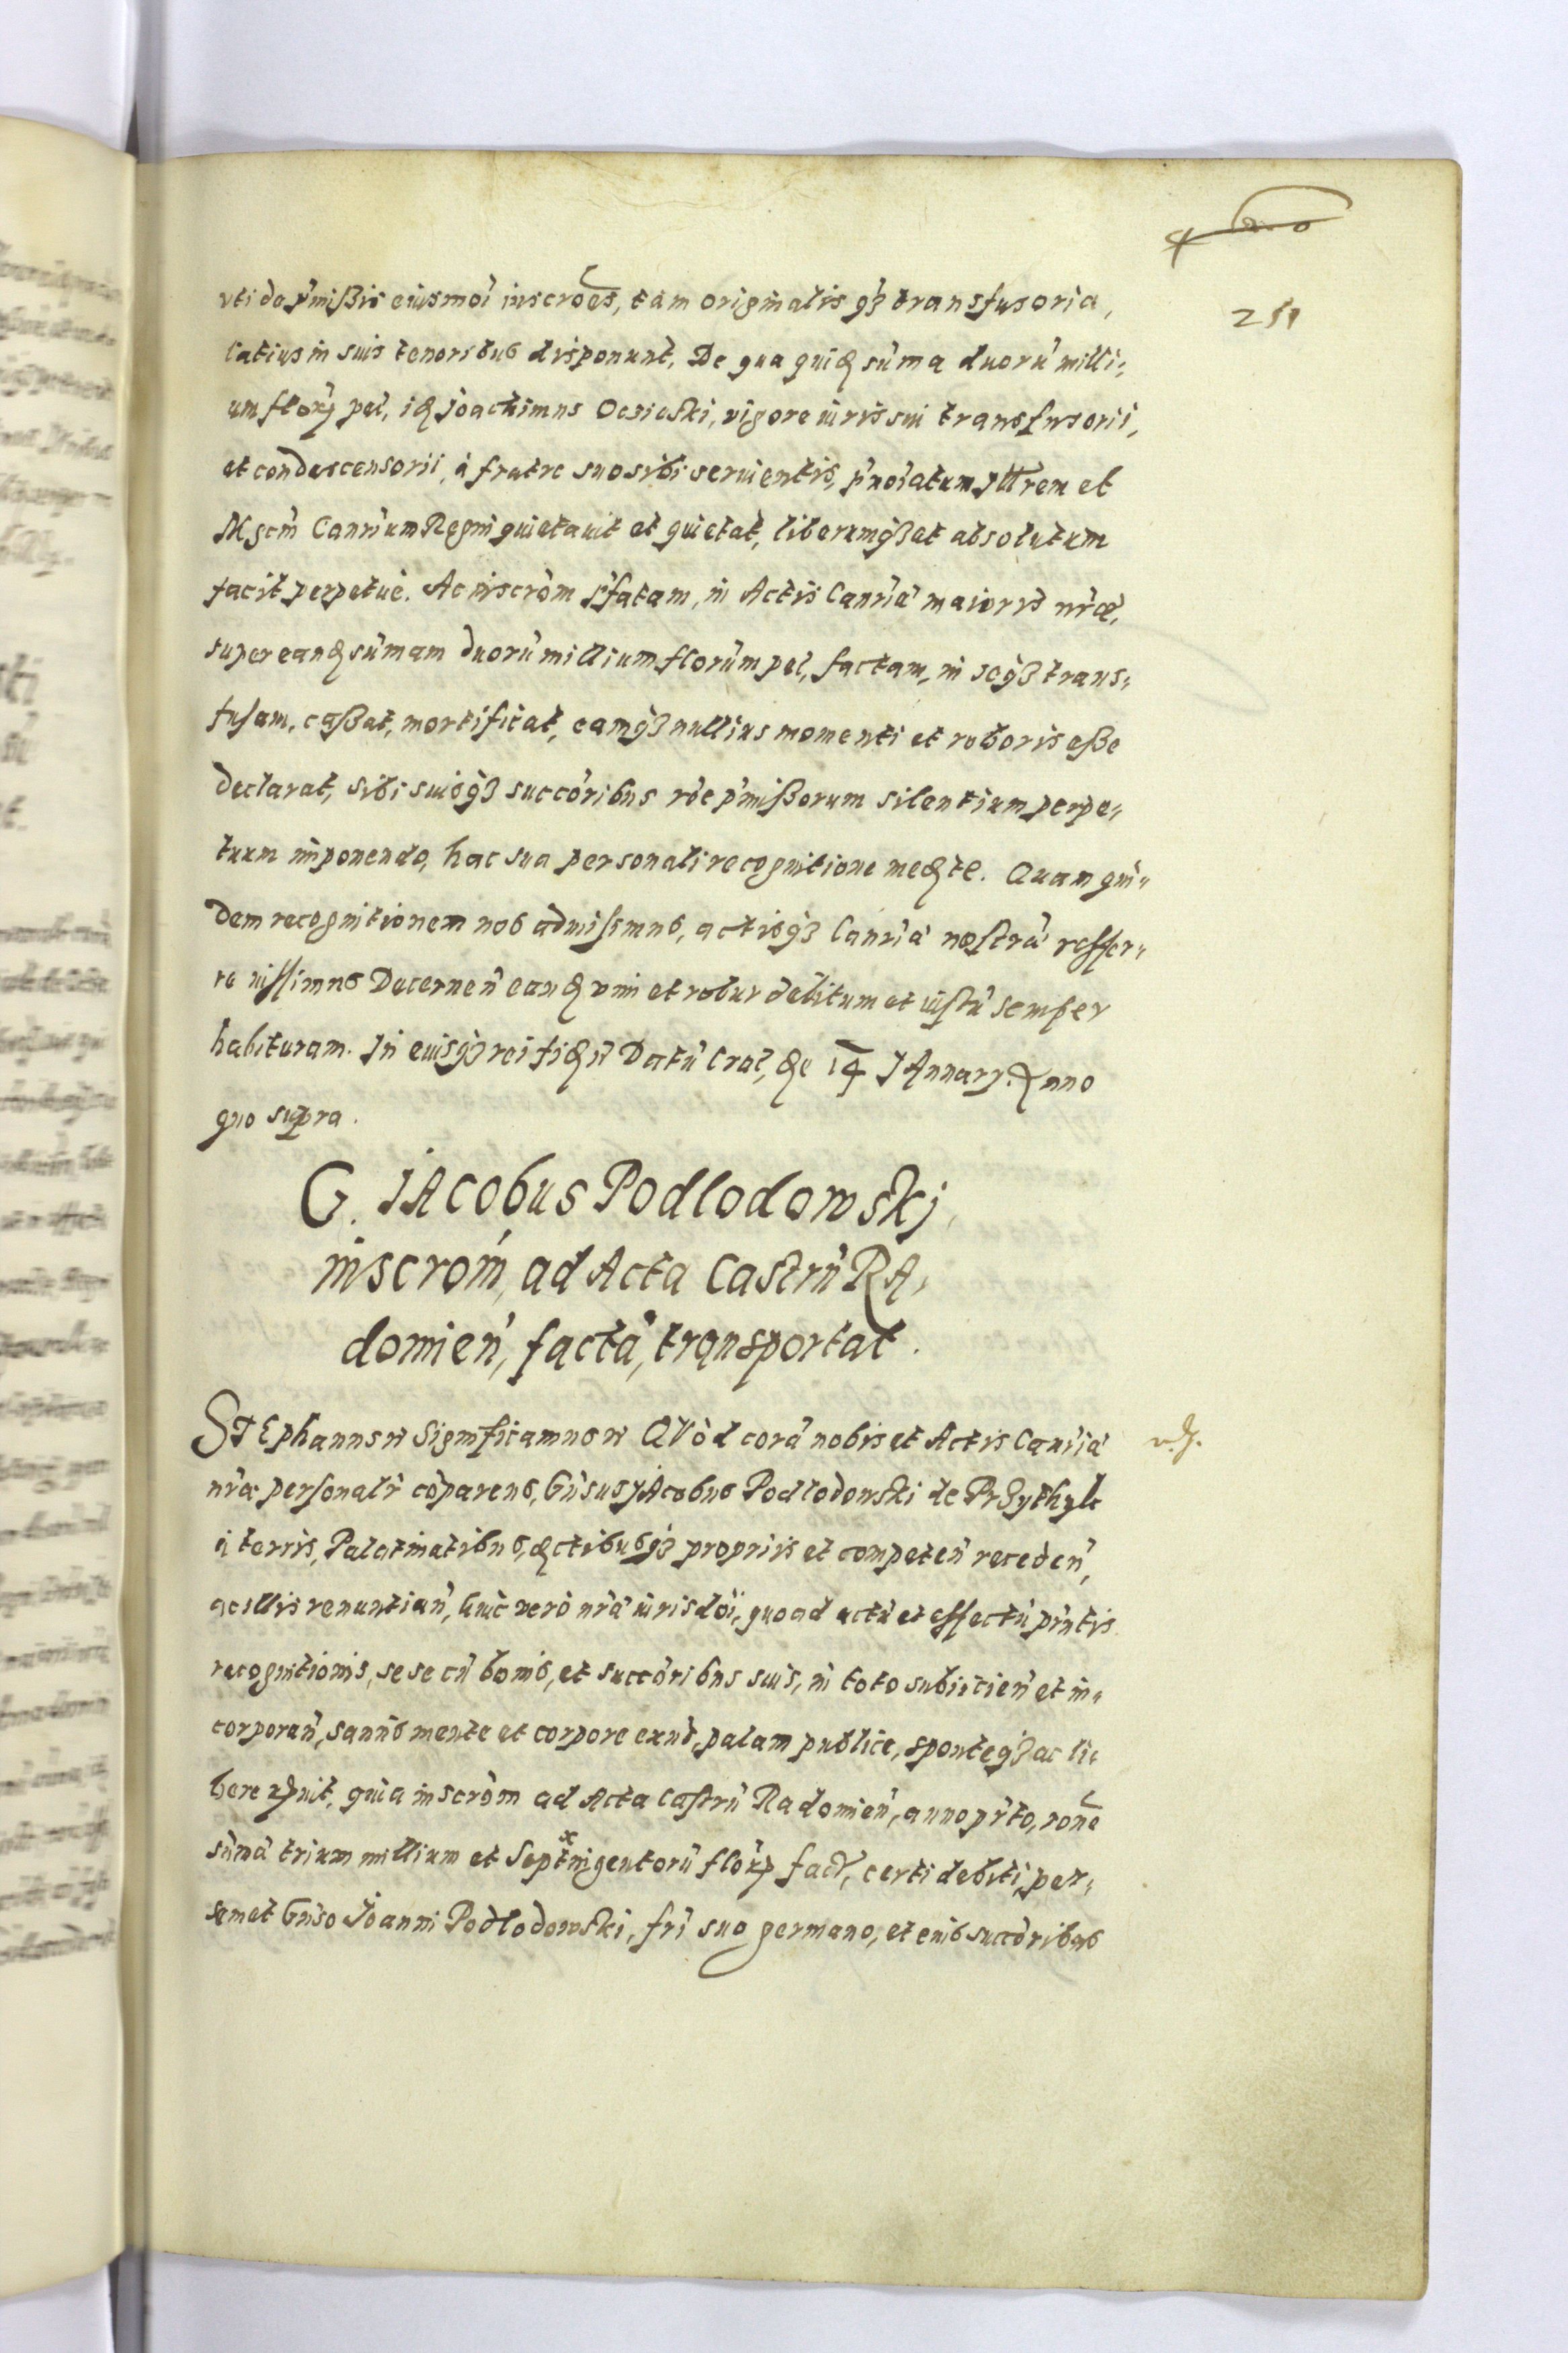 251
vti de p'mißis eiusmoi inscrōēs, tam originalis q3 transfusoria,
latius in suis tenoribus disponunt, De qua quiɖ sum̄a duorū milli:
um flor̄ɖ pol, iɖ Joachimus Ocieski, vigore iuris sui transfusorii,
et condescensorii, à fratre suo sibi seruientis, p'noiatum Jllrem et
Mgcm̄ Canr̄ium Regni quietauit et quietat, liberumq3 et absolutum
facit perpetuè. Ac inscrōm p'fatam, in Actis Canr̄iæ maioris nr̄æ,
super eanɖ sum̄am duorū millium florūm pol, factam, in seq3 trans:
fusam, caßat, mortificat, eamq3 nullius momenti et roboris eße
declarat, sibi suisq3 succoribus rōe p'mißorum silentium perpe:
tuum imponendo, hac sua personali recognitione meɖte. Quam qui:
dem recognitionem nos admisimus, actisq3 Canr̄iæ nostræ reffer:
re iussimus Decernen̄ eanɖ vim et robur debitum et iustū semper
habituram. In cuiusq3 rei fiɖ n̄ Datū Crac, ɖe 14 JAnuary. Anno
quo supra.
G. JAcobus Podlodowskj,
inscrom̄, ad Acta Castrn̄ RA,
domien̄, factā, transportat.
STEphanus n̄ Significamus n̄ QVòd corā nobis et Actis Canr̄iæ
nr̄æ personalr̄ cōparens, Gn̄sus JAcobus Podlodowski de PrZythyk
à terris, Palatinatibus, Actibusq3 propriis et competen̄ receden̄,
ac illis renuntian̄, huic verò nr̄æ iurisdōi, quoad actū et effectū pn̄tis
recognitionis, sese cū bonis, et succoribus suis, in toto subiicien̄ et in:
corporan̄, sanus mente et corpore exns, palam publice, sponteq3 ac li:
bere rɖuit, quia inscrōm ad Acta Castrn̄ Radomien̄, anno pn̄to, rōne
sum̄æ trium millium et Septingentorū florɖ fact, certi debiti, per,
semet Gn̄so Joanni Podlodowski, frī suo germano, et eius succoribus